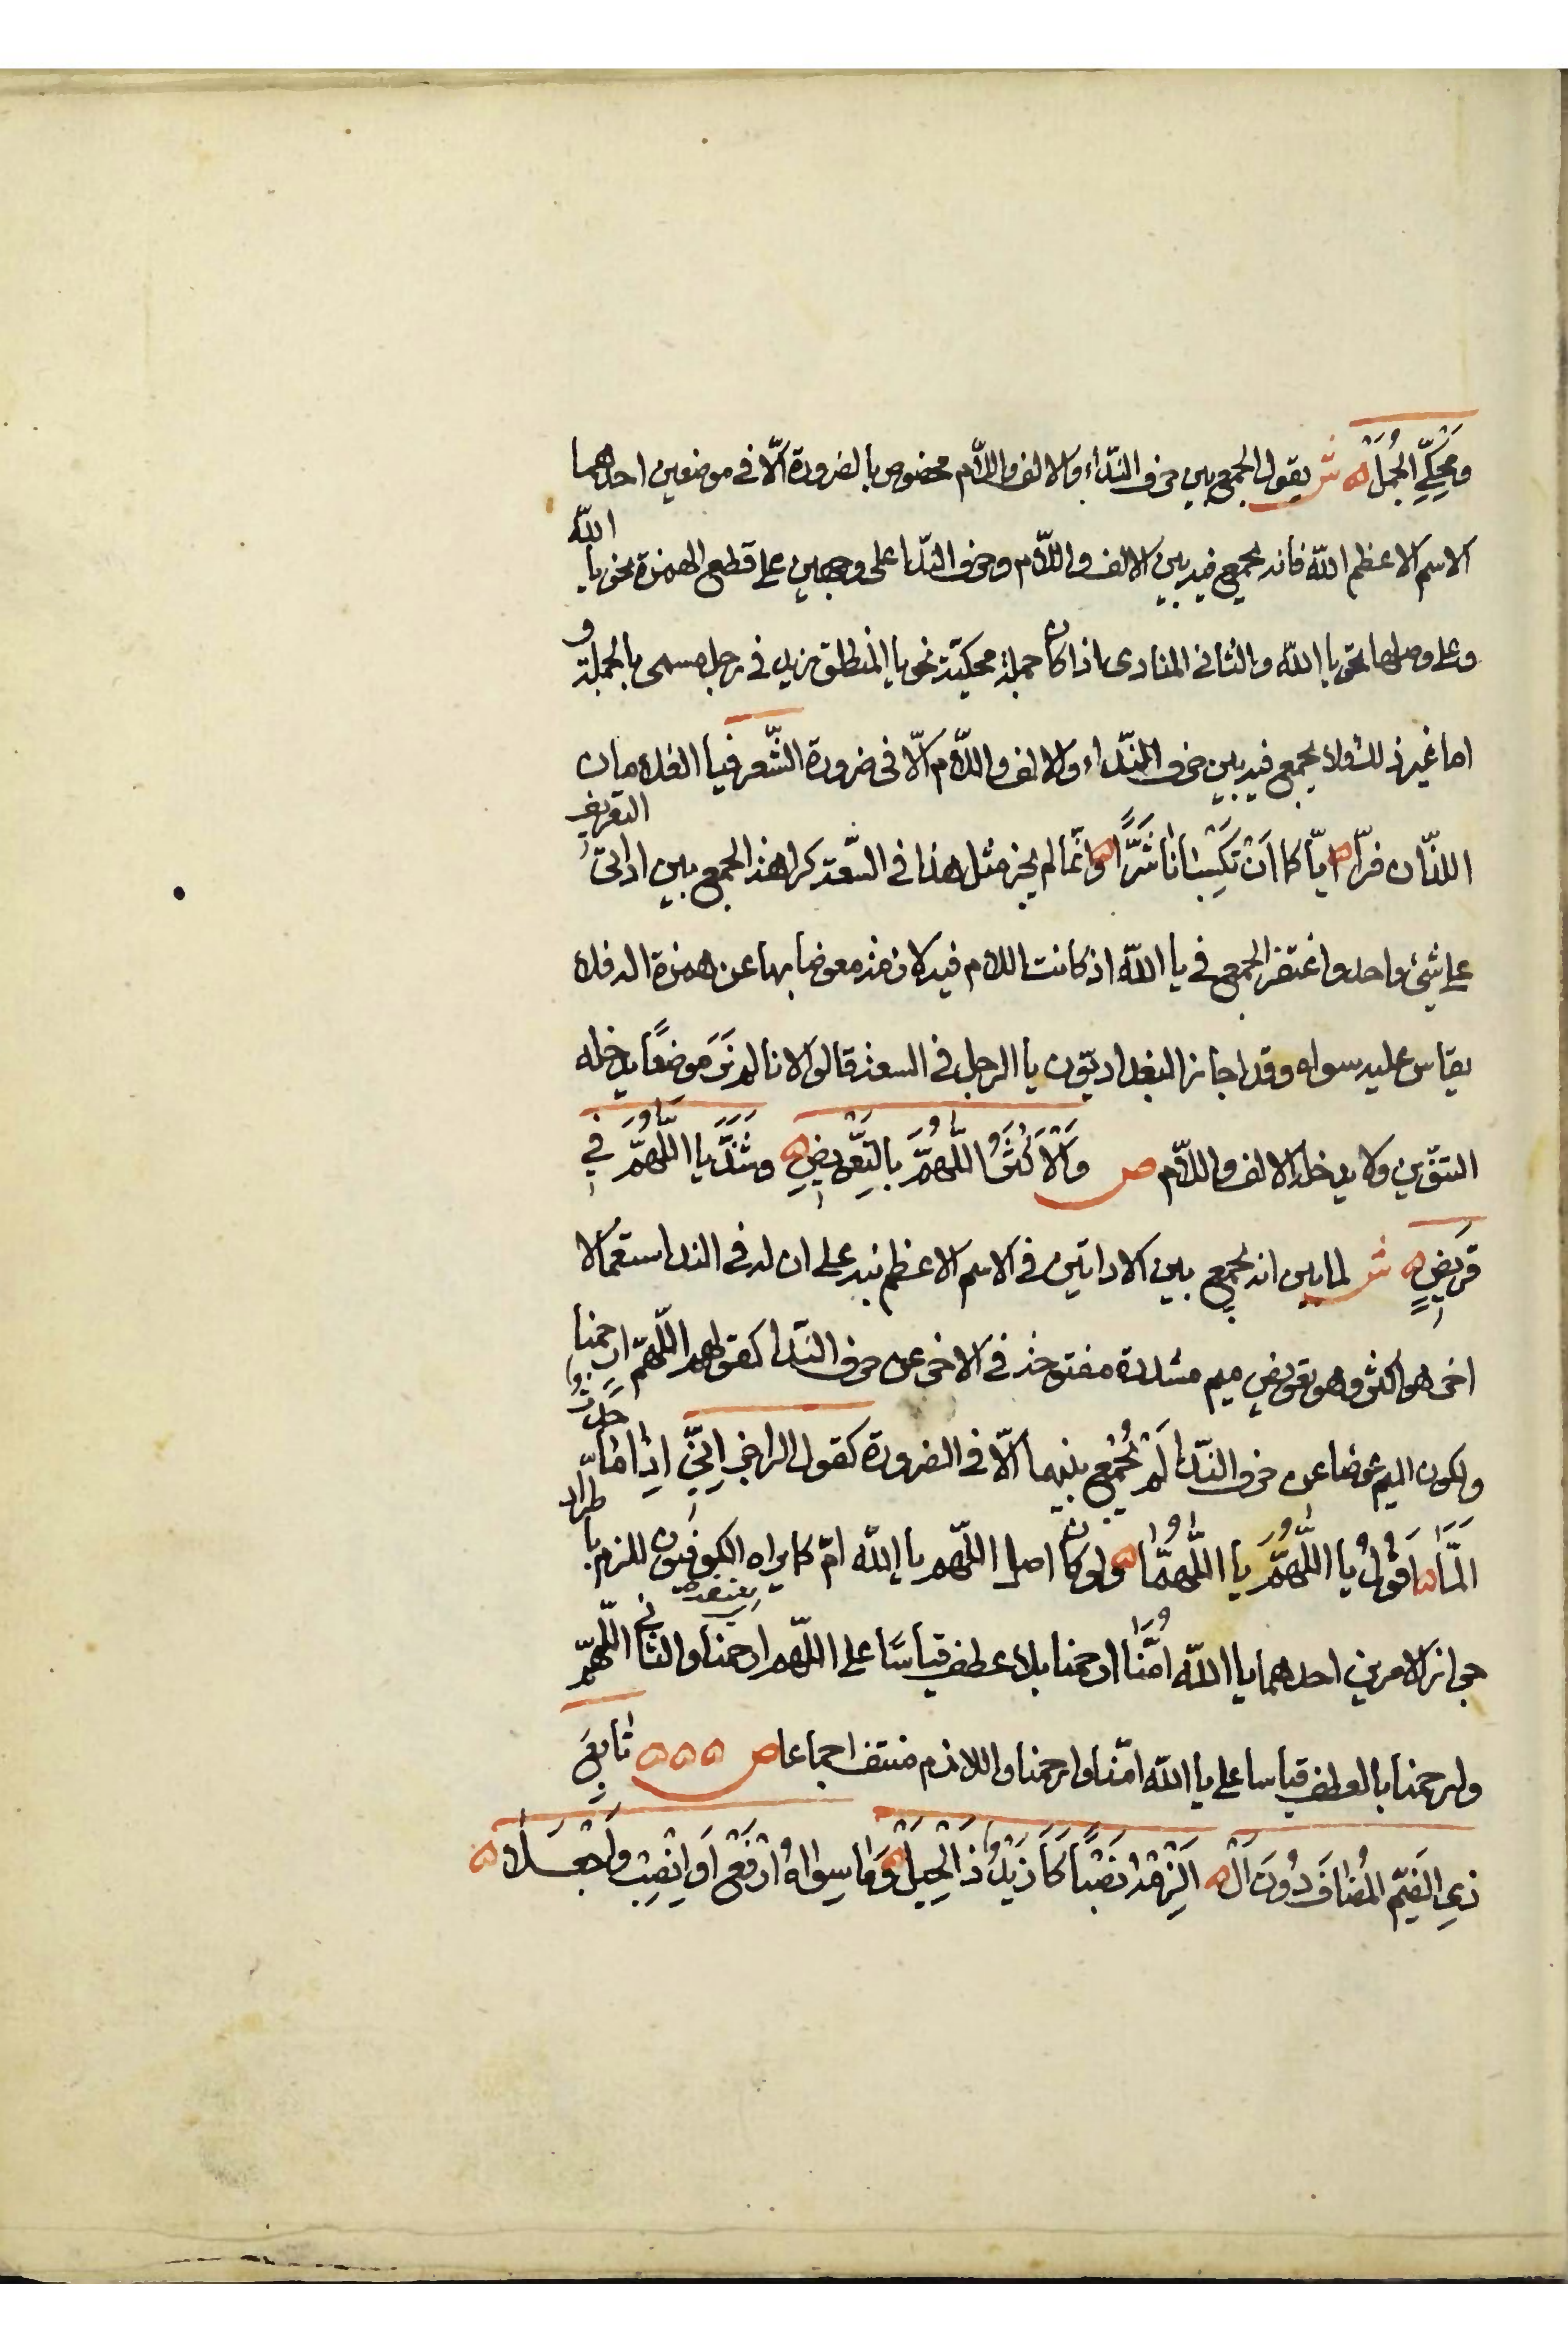 ومَحكيِّ الجُمَل ه ش يقول الجمع بين حرف النّداء والالف واللّام مخصوص بالضرورة الّا في موضعين احدهما
الاسم الاعظم الله فانه يجمع فيه بين الالف واللّام وحرف النّدا على وجهين على قطع الهمزة نحو يا الله
وعلى وصلها نحو يا الله والثاني المنادى اذا كان جملة محكيّة نحو يا المنطلق زيد في رجل مسمى بالجملة و
اما غير ذلك ولا يجمع فيه بين حرف النّداء والالف واللّام الّا في ضرورة الشّعر فيا الغلامان
اللذّان فرّا ه ايّاكما اَنْ تكسِبَانا شَرًّا ه وانّما لم يجز مثل هذا في السّعة كراهة الجمع بين اداتي التعريف
على شيئ واحد واغتفر الجمع في يا الله اذ كانت اللام فيه لازمة معوضا بها عن همزة اله فلا
يقاس عليه سواه وقد اجاز البغداديّون يا الرجل في السعة قالوا لانا لم نَرَ موضعًا يدخله
التنوين ولا يدخله الالف واللّام ص وَالْاَكْثَرُ اللَّهُمَّ بِالتَّعْوِيضِ ه وشَذَّ يا اللَّهُمَّ فِي
قَرِيضِ ه ش لما بين انه يجمع بين الاداتين في الاسم الاعظم نبه على ان له في الندا استعمالا
اخر هو اكثر وهو تعويض ميم مشددة مفتوحة في الاخر عن حرف النّدا كقولهم اللّهمّ ارحمنا
ولكون الميم عوضا عن حرف النّدا لَمْ يُجْمع بينهما الّا في الضرورة كقول الراجز اِنّي اِذا مَا حَدَثٌ
اَلَمَّا ه اَقُولُ يا اللَّهُمَّ يا اللَّهُمَّا ه ولو كان اصل اللّهم يا الله امّ كما يراه الكوفيون للزم باطراد
جواز الامرين احدهما يا الله اُمَّنا ارحمنا بلا عطف قياسًا على اللّهم ارحمنا والثاني اللّهمّ
وارحمنا بالعطف قياسا على يا الله امّنا وارحمنا واللازم منتف اجماعا ص ه ه ه تَابِعَ
ذِي الضَّمِّ المُضَافَ دُونَ اَلْ ه اَلْزِمْهُ نَصْبًا كَاَ زَيْدُ ذَا الْحِيَلْ ه وَمَا سِوَاهُ ارْفَعْ اَوِ انْصِبْ وَاجْعَلَا ه